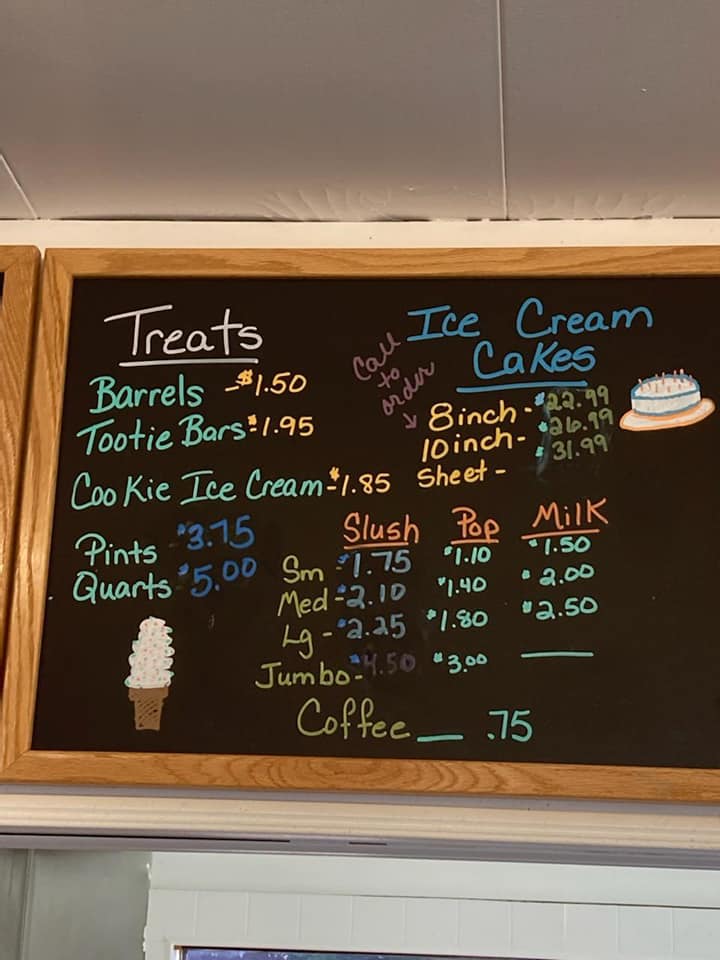 Treats
Barrels - $1.50
Tootie Bars - $1.95
Cookie Ice Cream - $1.85
Pints $3.75
Quarts $5.00
Call
to
order
Ice Cream
Cakes
8inch - $22.99
10inch - $26.99
Sheet - $31.99
Slush Pop Milk
Sm - $1.75 $1.10 $1.50
Med - $2.10 $1.40 $2.00
Lg - $2.25 $1.80 $2.50
Jumbo - $4.50 $3.00 —
Coffee — .75